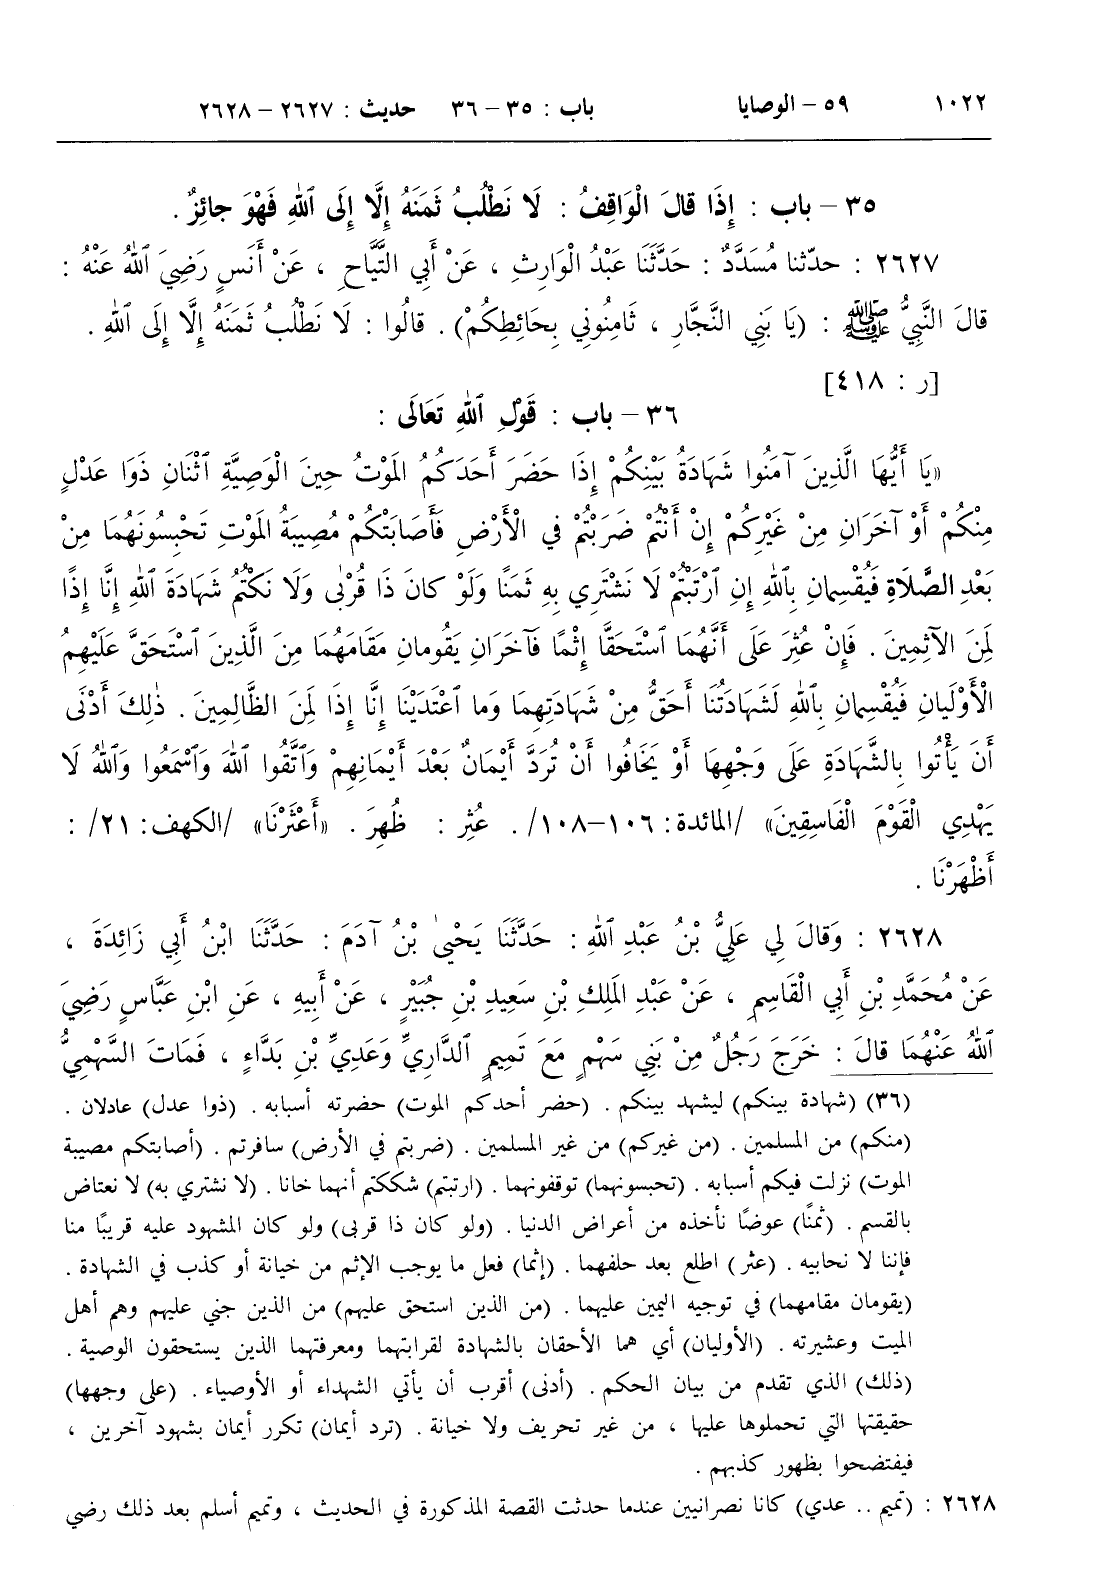 ١٠٢٢ ٥٩ – الوصايا باب : ٣٥ – ٣٦ حديث : ٢٦٢٧ – ٢٦٢٨
٣٥ – باب : إِذَا قَالَ الْوَاقِفُ : لَا نَطْلُبُ ثَمَنَهُ إِلَّا إِلَى ٱللهِ فَهْوَ جائِزٌ .
٢٦٢٧ : حدّثنا مُسَدَّدٌ : حَدَّثَنَا عَبْدُ الْوَارِثِ ، عَنْ أَبِي التَّيَّاحِ ، عَنْ أَنَسٍ رَضِيَ ٱللهُ عَنْهُ :
قالَ النَّبِيُّ ﷺ : (يَا بَنِي النَّجَّارِ ، ثَامِنُونِي بِحَائِطِكُمْ) . قالُوا : لَا نَطْلُبُ ثَمَنَهُ إِلَّا إِلَى ٱللهِ .
[ر : ٤١٨]
٣٦ – باب : قَوْلِ ٱللهِ تَعَالَى :
«يَا أَيُّهَا الَّذِينَ آمَنُوا شَهَادَةُ بَيْنِكُمْ إِذَا حَضَرَ أَحَدَكُمُ المَوْتُ حِينَ الْوَصِيَّةِ ٱثْنَانِ ذَوَا عَدْلٍ
مِنْكُمْ أَوْ آخَرَانِ مِنْ غَيْرِكُمْ إِنْ أَنْتُمْ ضَرَبْتُمْ في الْأَرْضِ فَأَصَابَتْكُمْ مُصِيبَةُ المَوْتِ تَحْبِسُونَهُمَا مِنْ
بَعْدِ الصَّلَاةِ فَيُقْسِمانِ بِٱللهِ إِنِ ٱرْتَبْتُمْ لَا نَشْتَرِي بِهِ ثَمَنًا وَلَوْ كانَ ذَا قُرْبٰى وَلَا نَكْتُمُ شَهَادَةَ ٱللهِ إِنَّا إِذًا
لَمِنَ الآثِمِينَ . فَإِنْ عُثِرَ عَلَى أَنَّهُمَا ٱسْتَحَقَّا إِثْمًا فَآخَرَانِ يَقُومانِ مَقَامَهُمَا مِنَ الَّذِينَ ٱسْتَحَقَّ عَلَيْهِمُ
الْأَوْلَيَانِ فَيُقْسِمانِ بِٱللهِ لَشَهَادَتُنَا أَحَقُّ مِنْ شَهَادَتِهِمَا وَما ٱعْتَدَيْنَا إِنَّا إِذًا لَمِنَ الظَّالِمِينَ . ذٰلِكَ أَدْنَى
أَنَ يَأْتُوا بِالشَّهَادَةِ عَلَى وَجْهِهَا أَوْ يَخَافُوا أَنْ تُرَدَّ أَيْمَانٌ بَعْدَ أَيْمَانِهِمْ وَٱتَّقُوا ٱللهَ وَٱسْمَعُوا وَٱللهُ لَا
يَهْدِي الْقَوْمَ الْفَاسِقِينَ» /المائدة: ١٠٦–١٠٨/ . عُثِر : ظُهِرَ . «أَعْثَرْنَا» /الكهف: ٢١/ :
أَظْهَرْنَا .
٢٦٢٨ : وَقالَ لِي عَلِيُّ بْنُ عَبْدِ ٱللهِ : حَدَّثَنَا يَحْيىٰ بْنُ آدَمَ : حَدَّثَنَا ابْنُ أَبِي زَائِدَةَ ،
عَنْ مُحَمَّدِ بْنِ أَبِي الْقَاسِمِ ، عَنْ عَبْدِ المَلِكِ بْنِ سَعِيدِ بْنِ جُبَيْرٍ ، عَنْ أَبِيهِ ، عَنِ ابْنِ عَبَّاسٍ رَضِيَ
ٱللهُ عَنْهُمَا قالَ : خَرَجَ رَجُلٌ مِنْ بَنِي سَهْمٍ مَعَ تَمِيمٍ ٱلدَّارِيِّ وَعَدِيِّ بْنِ بَدَّاءٍ ، فَمَاتَ السَّهْمِيُّ
(٣٦) (شهادة بينكم) ليشهد بينكم . (حضر أحدكم الموت) حضرته أسبابه . (ذوا عدل) عادلان .
(منكم) من المسلمين . (من غيركم) من غير المسلمين . (ضربتم في الأرض) سافرتم . (أصابتكم مصيبة
الموت) نزلت فيكم أسبابه . (تحبسونهما) توقفونهما . (ارتبتم) شككتم أنهما خانا . (لا نشتري به) لا نعتاض
بالقسم . (ثمنًا) عوضًا نأخذه من أعراض الدنيا . (ولو كان ذا قربى) ولو كان المشهود عليه قريبًا منا
فإننا لا نحابيه . (عثر) اطلع بعد حلفهما . (إثما) فعل ما يوجب الإثم من خيانة أو كذب في الشهادة .
(يقومان مقامهما) في توجيه اليمين عليهما . (من الذين استحق عليهم) من الذين جني عليهم وهم أهل
الميت وعشيرته . (الأوليان) أي هما الأحقان بالشهادة لقرابتهما ومعرفتهما الذين يستحقون الوصية .
(ذلك) الذي تقدم من بيان الحكم . (أدنى) أقرب أن يأتي الشهداء أو الأوصياء . (على وجهها)
حقيقتها التي تحملوها عليها ، من غير تحريف ولا خيانة . (ترد أيمان) تكرر أيمان بشهود آخرين ،
فيفتضحوا بظهور كذبهم .
٢٦٢٨ : (تميم .. عدي) كانا نصرانيين عندما حدثت القصة المذكورة في الحديث ، وتميم أسلم بعد ذلك رضي